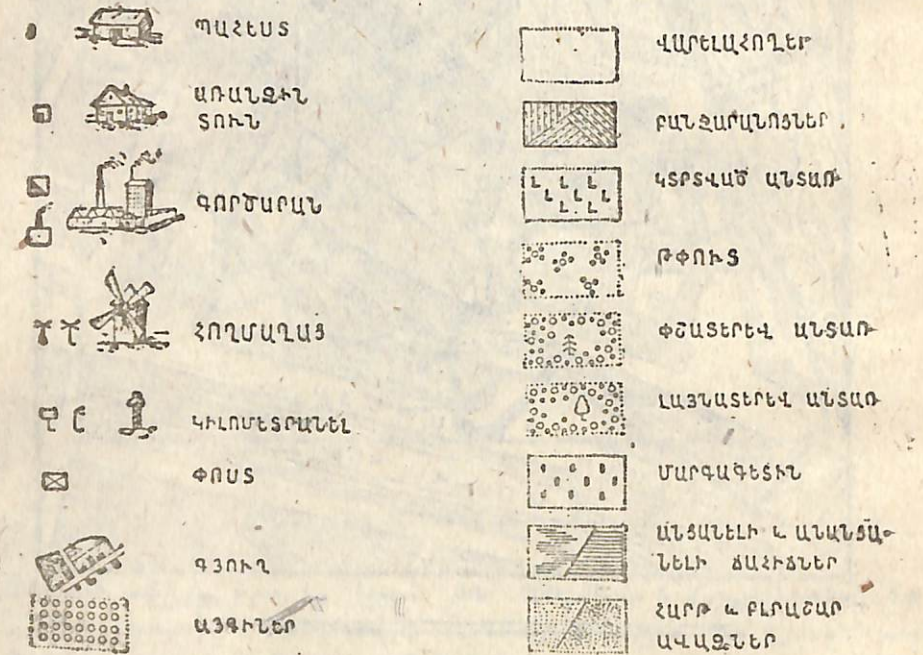 ՊԱՀԵՍՏ
ԱՌԱՆՁԻՆ
ՏՈՒՆ
ԳՈՐԾԱՐԱՆ
ՀՈՂՄԱՂԱՑ
ԿԻԼՈՄԵՏՐԱՆԵԼ
ՓՈՍՏ
ԳՅՈՒՂ
ԱՅԳԻՆԵՐ
ՎԱՐԵԼԱՀՈՂԵՐ
ԲԱՆՋԱՐԱՆՈՑՆԵՐ
ԿՏՐՏՎԱԾ ԱՆՏԱՌ
ԹՓՈՒՏ
ՓՇԱՏԵՐԵՎ ԱՆՏԱՌ
ԼԱՅՆԱՏԵՐԵՎ ԱՆՏԱՌ
ՄԱՐԳԱԳԵՏԻՆ
ԱՆՑԱՆԵԼԻ և ԱՆԱՆՑԱ-
ՆԵԼԻ ՃԱՀԻՃՆԵՐ
ՀԱՐԹ և ԲԼՐԱՇԱՐ
ԱՎԱԶՆԵՐ